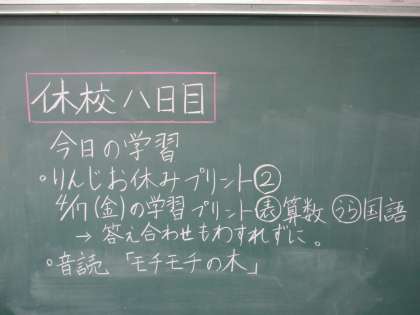 休校八日目
今日の学習
・りんじお休みプリント②
4/17(金)の学習プリント㊤表算数 うら国語
→ 答え合わせもわすれずに。
・音読「モチモチの木」